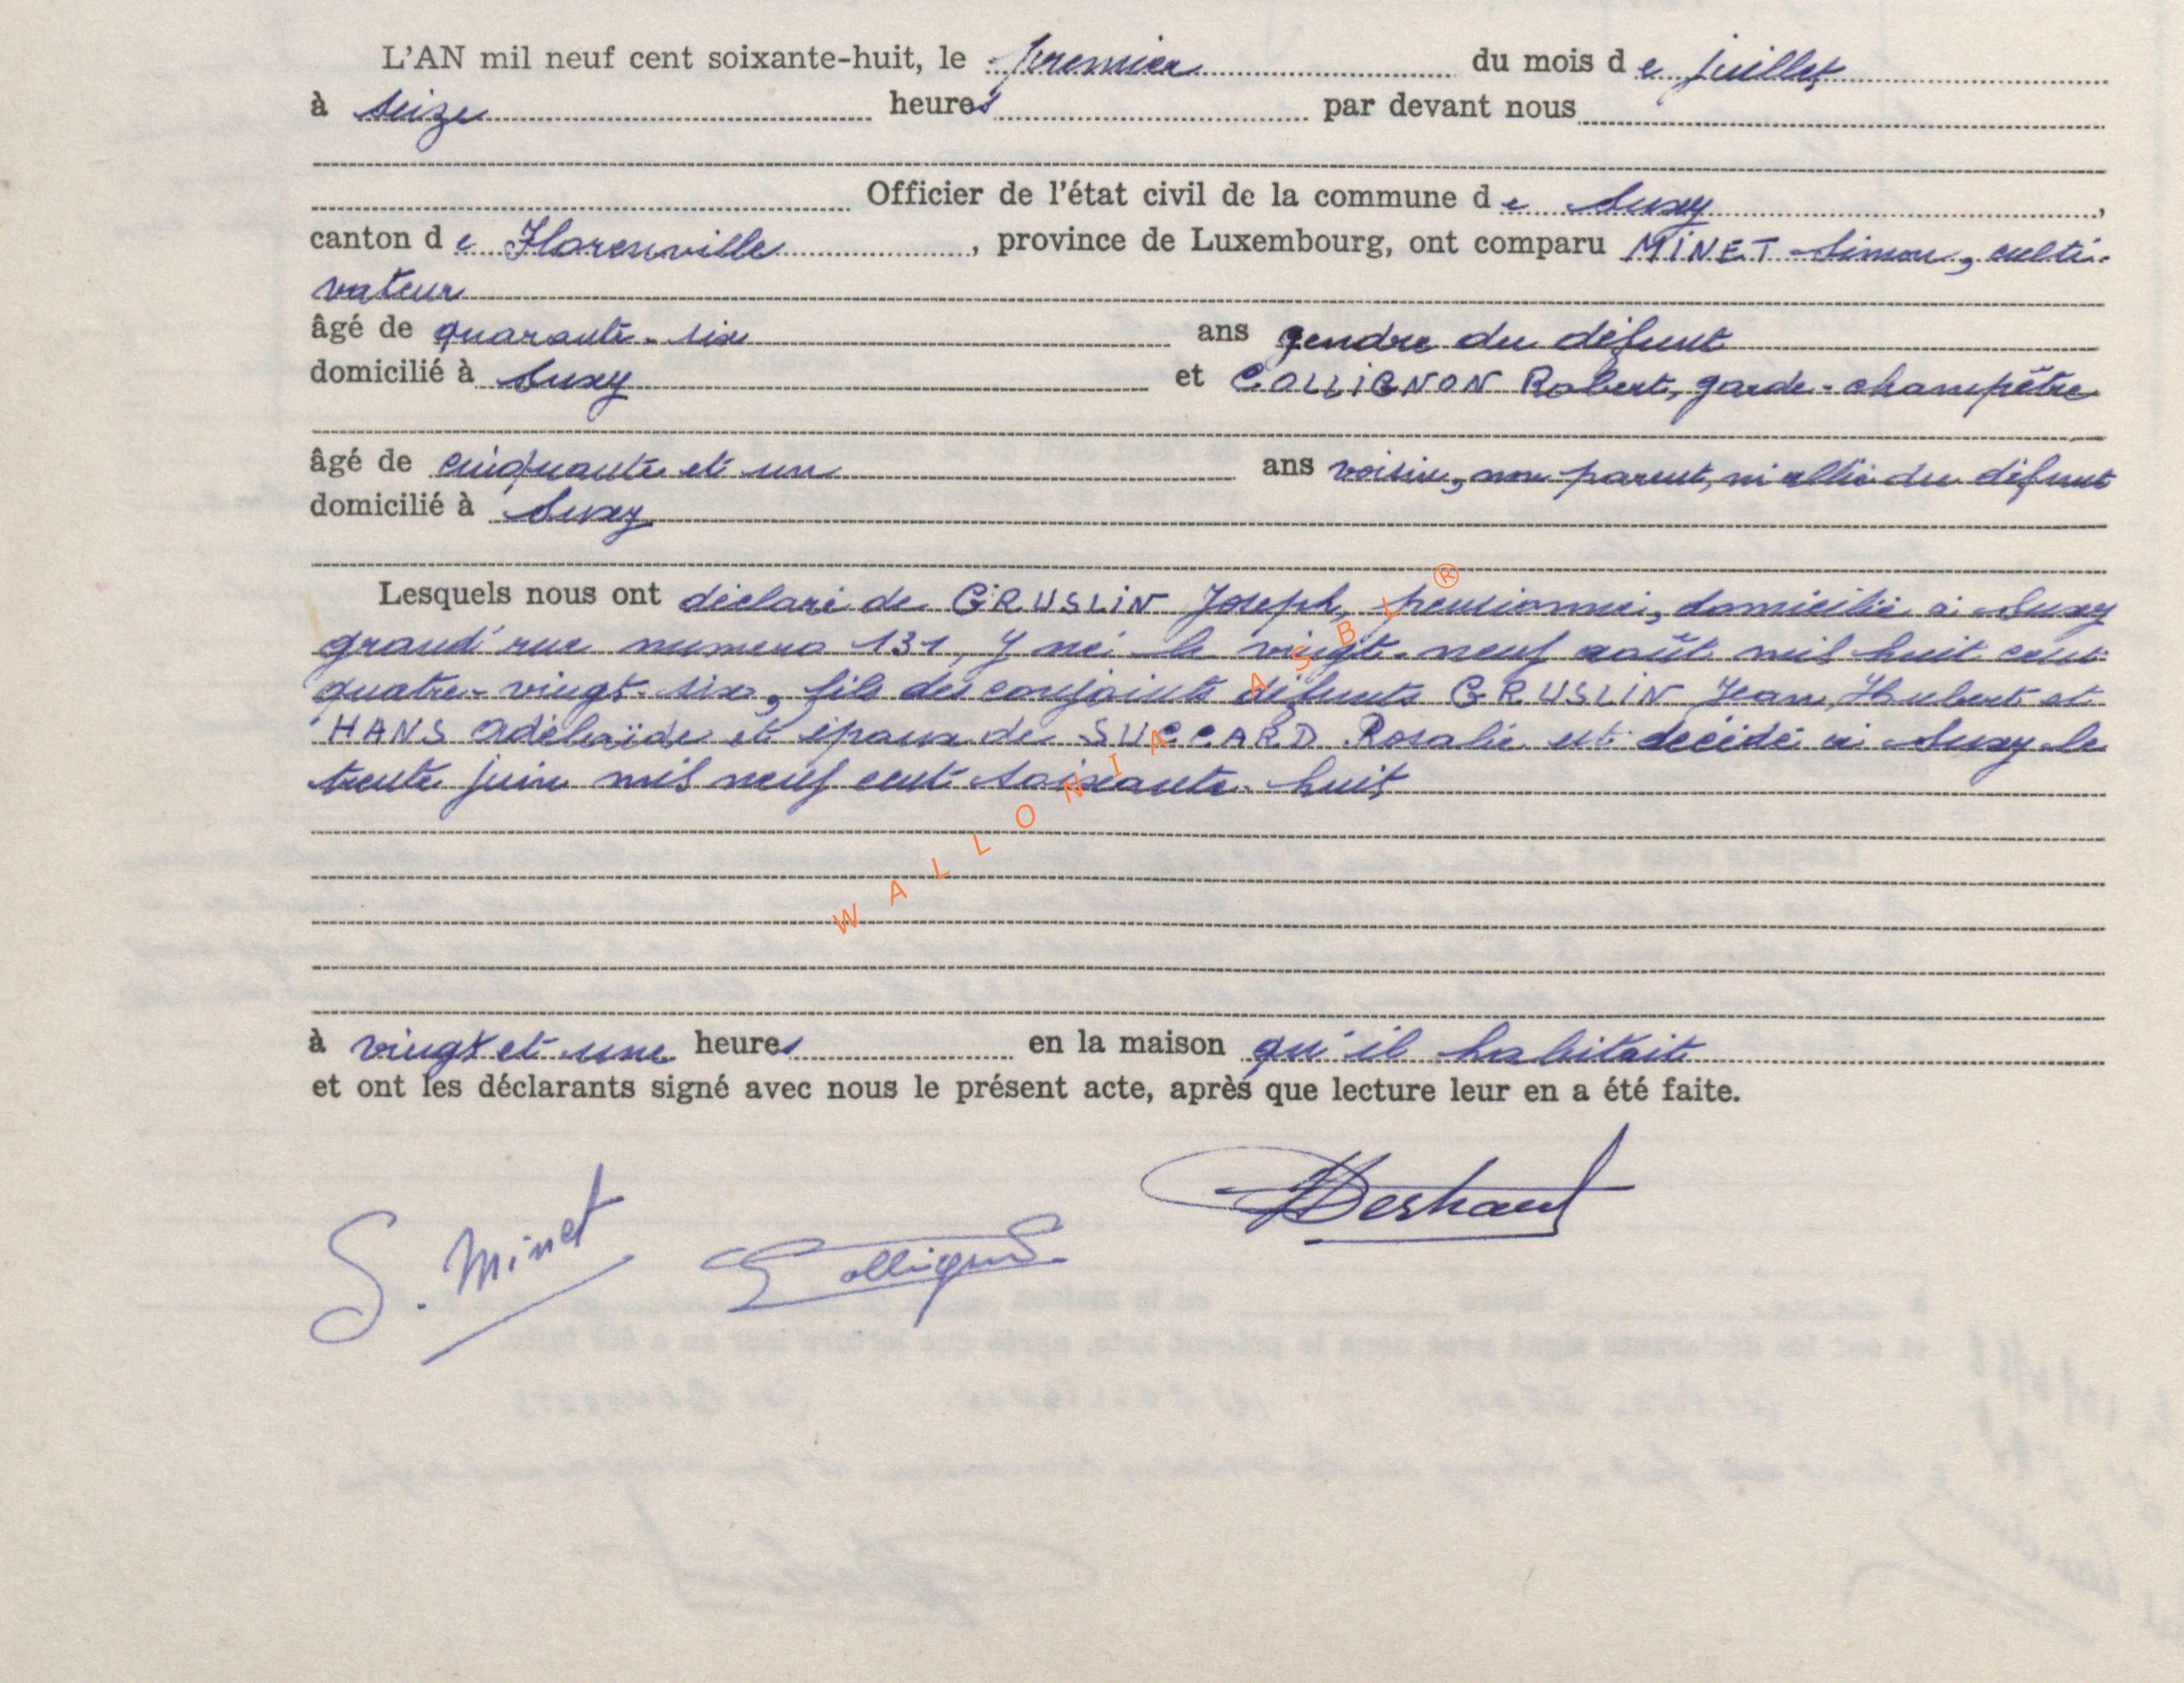 L'AN mil neuf cent soixante-huit, le premier du mois de juillet
à seize heures par devant nous
Officier de l'état civil de la commune de Suxy,
canton de Florenville, province de Luxembourg, ont comparu MINET Simon, culti-
vateur
âgé de quarante-six ans gendre du défunt
domicilié à Suxy et COLLIGNON Robert, garde-champêtre
âgé de cinquante et un ans voisin, non parent, ni allié du défunt
domicilié à Suxy
Lesquels nous ont déclaré de GRUSLIN Joseph, pensionné, domicilié à Suxy
grand'rue numero 131, y né le vingt-neuf août mil huit cent
quatre-vingt-six, fils des conjoints défunts GRUSLIN Jean, Hubert et
HANS Adélaïde et époux de SUCCARD Rosalie est décédé à Suxy le
trente juin mil neuf cent soixante-huit
à vingt et une heures en la maison qu'il habitait
et ont les déclarants signé avec nous le présent acte, après que lecture leur en a été faite.
S. Minet Collignon
WALLONIA ASBL ®